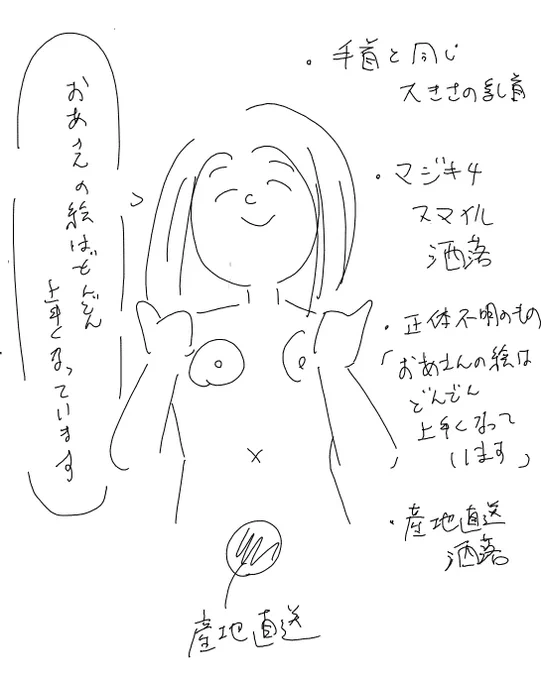 おあえの絵はどんどん
上手くなっています
・手首と同じ
大きさの乳首
・マジキチ
スマイル
洒落
・正体不明のもの
「おあさんの絵は
どんどん
上手くなって
います」
・産地直送
洒落
産地直送